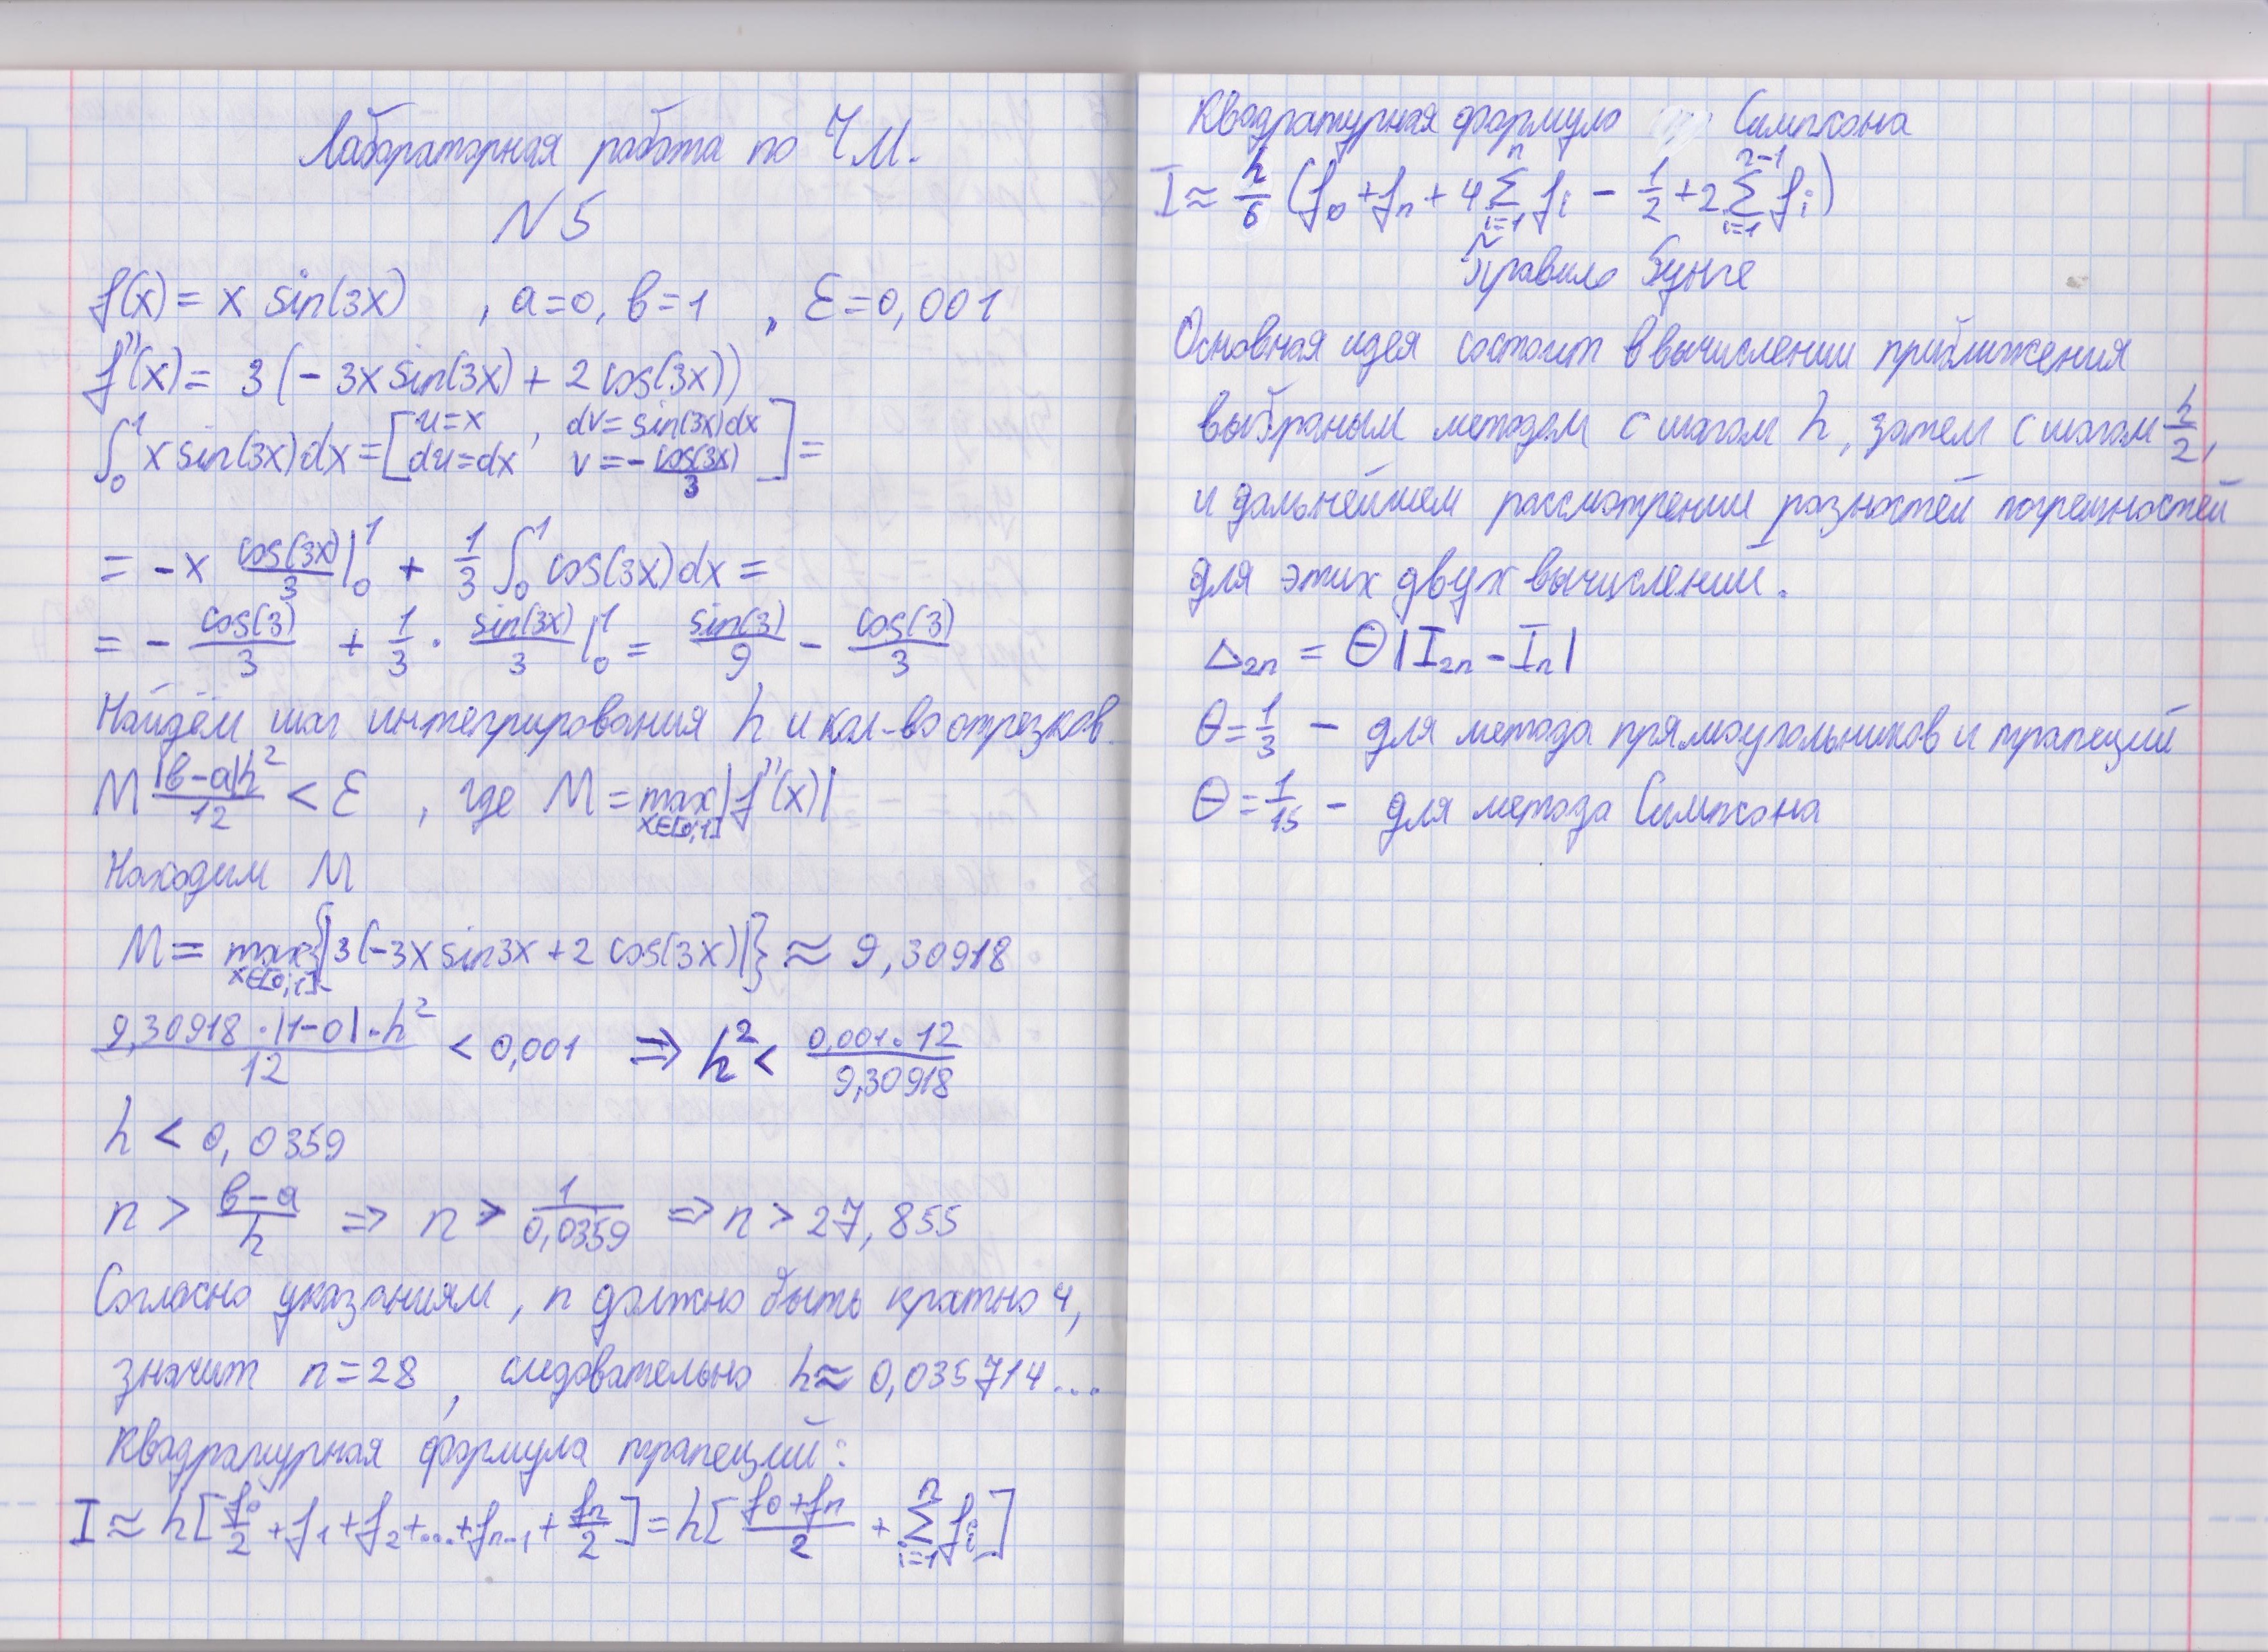 Лабораторная работа по ЧМ.
N 5
f(x) = x sin(3x) , a=0, b=1 , ε=0,001
f''(x) = 3(-3x sin(3x) + 2 cos(3x))
∫₀¹ x sin(3x)dx = [u=x, dv=sin(3x)dx; du=dx, v=-cos(3x)/3] =
= -x cos(3x)/3 |₀¹ + 1/3 ∫₀¹ cos(3x)dx =
= - cos(3)/3 + 1/3 · sin(3x)/3 |₀¹ = sin(3)/9 - cos(3)/3
Найдём шаг интегрирования h и кол-во отрезков.
M |b-a|h²/12 < ε , где M = max x∈[0;1] |f''(x)|
Находим M
M = max x∈[0;1] {|3(-3x sin3x + 2 cos(3x)|} ≈ 9,30918
9,30918·|1-0|·h²/12 < 0,001 ⇒ h² < 0,001·12/9,30918
h < 0,0359
n > b-a/h ⇒ n > 1/0,0359 ⇒ n > 27,855
Согласно указаниям, n должно быть кратно 4,
значит n=28 , следовательно h≈ 0,035714...
Квадратурная формула трапеций:
I ≈ h[f₀/2 + f₁ + f₂ + ... + fₙ₋₁ + fₙ/2] = h[f₀+fₙ/2 + ∑ᵢ₌₁ⁿ fᵢ]
Квадратурная формула Симпсона
I ≈ h/6 (f₀ + fₙ + 4 ∑ᵢ₌₁ⁿ fᵢ - 1/2 + 2 ∑ᵢ₌₁ⁿ⁻¹ fᵢ)
Правило Бунге
Основная идея состоит в вычислении приближения
выбраным методом с шагом h, затем с шагом h/2,
и дальнейшем рассмотрении разностей погрешностей
для этих двух вычислений.
Δ₂ₙ = Θ|I₂ₙ - Iₙ|
Θ=1/3 - для метода прямоугольников и трапеций
Θ=1/15 - для метода Симпсона